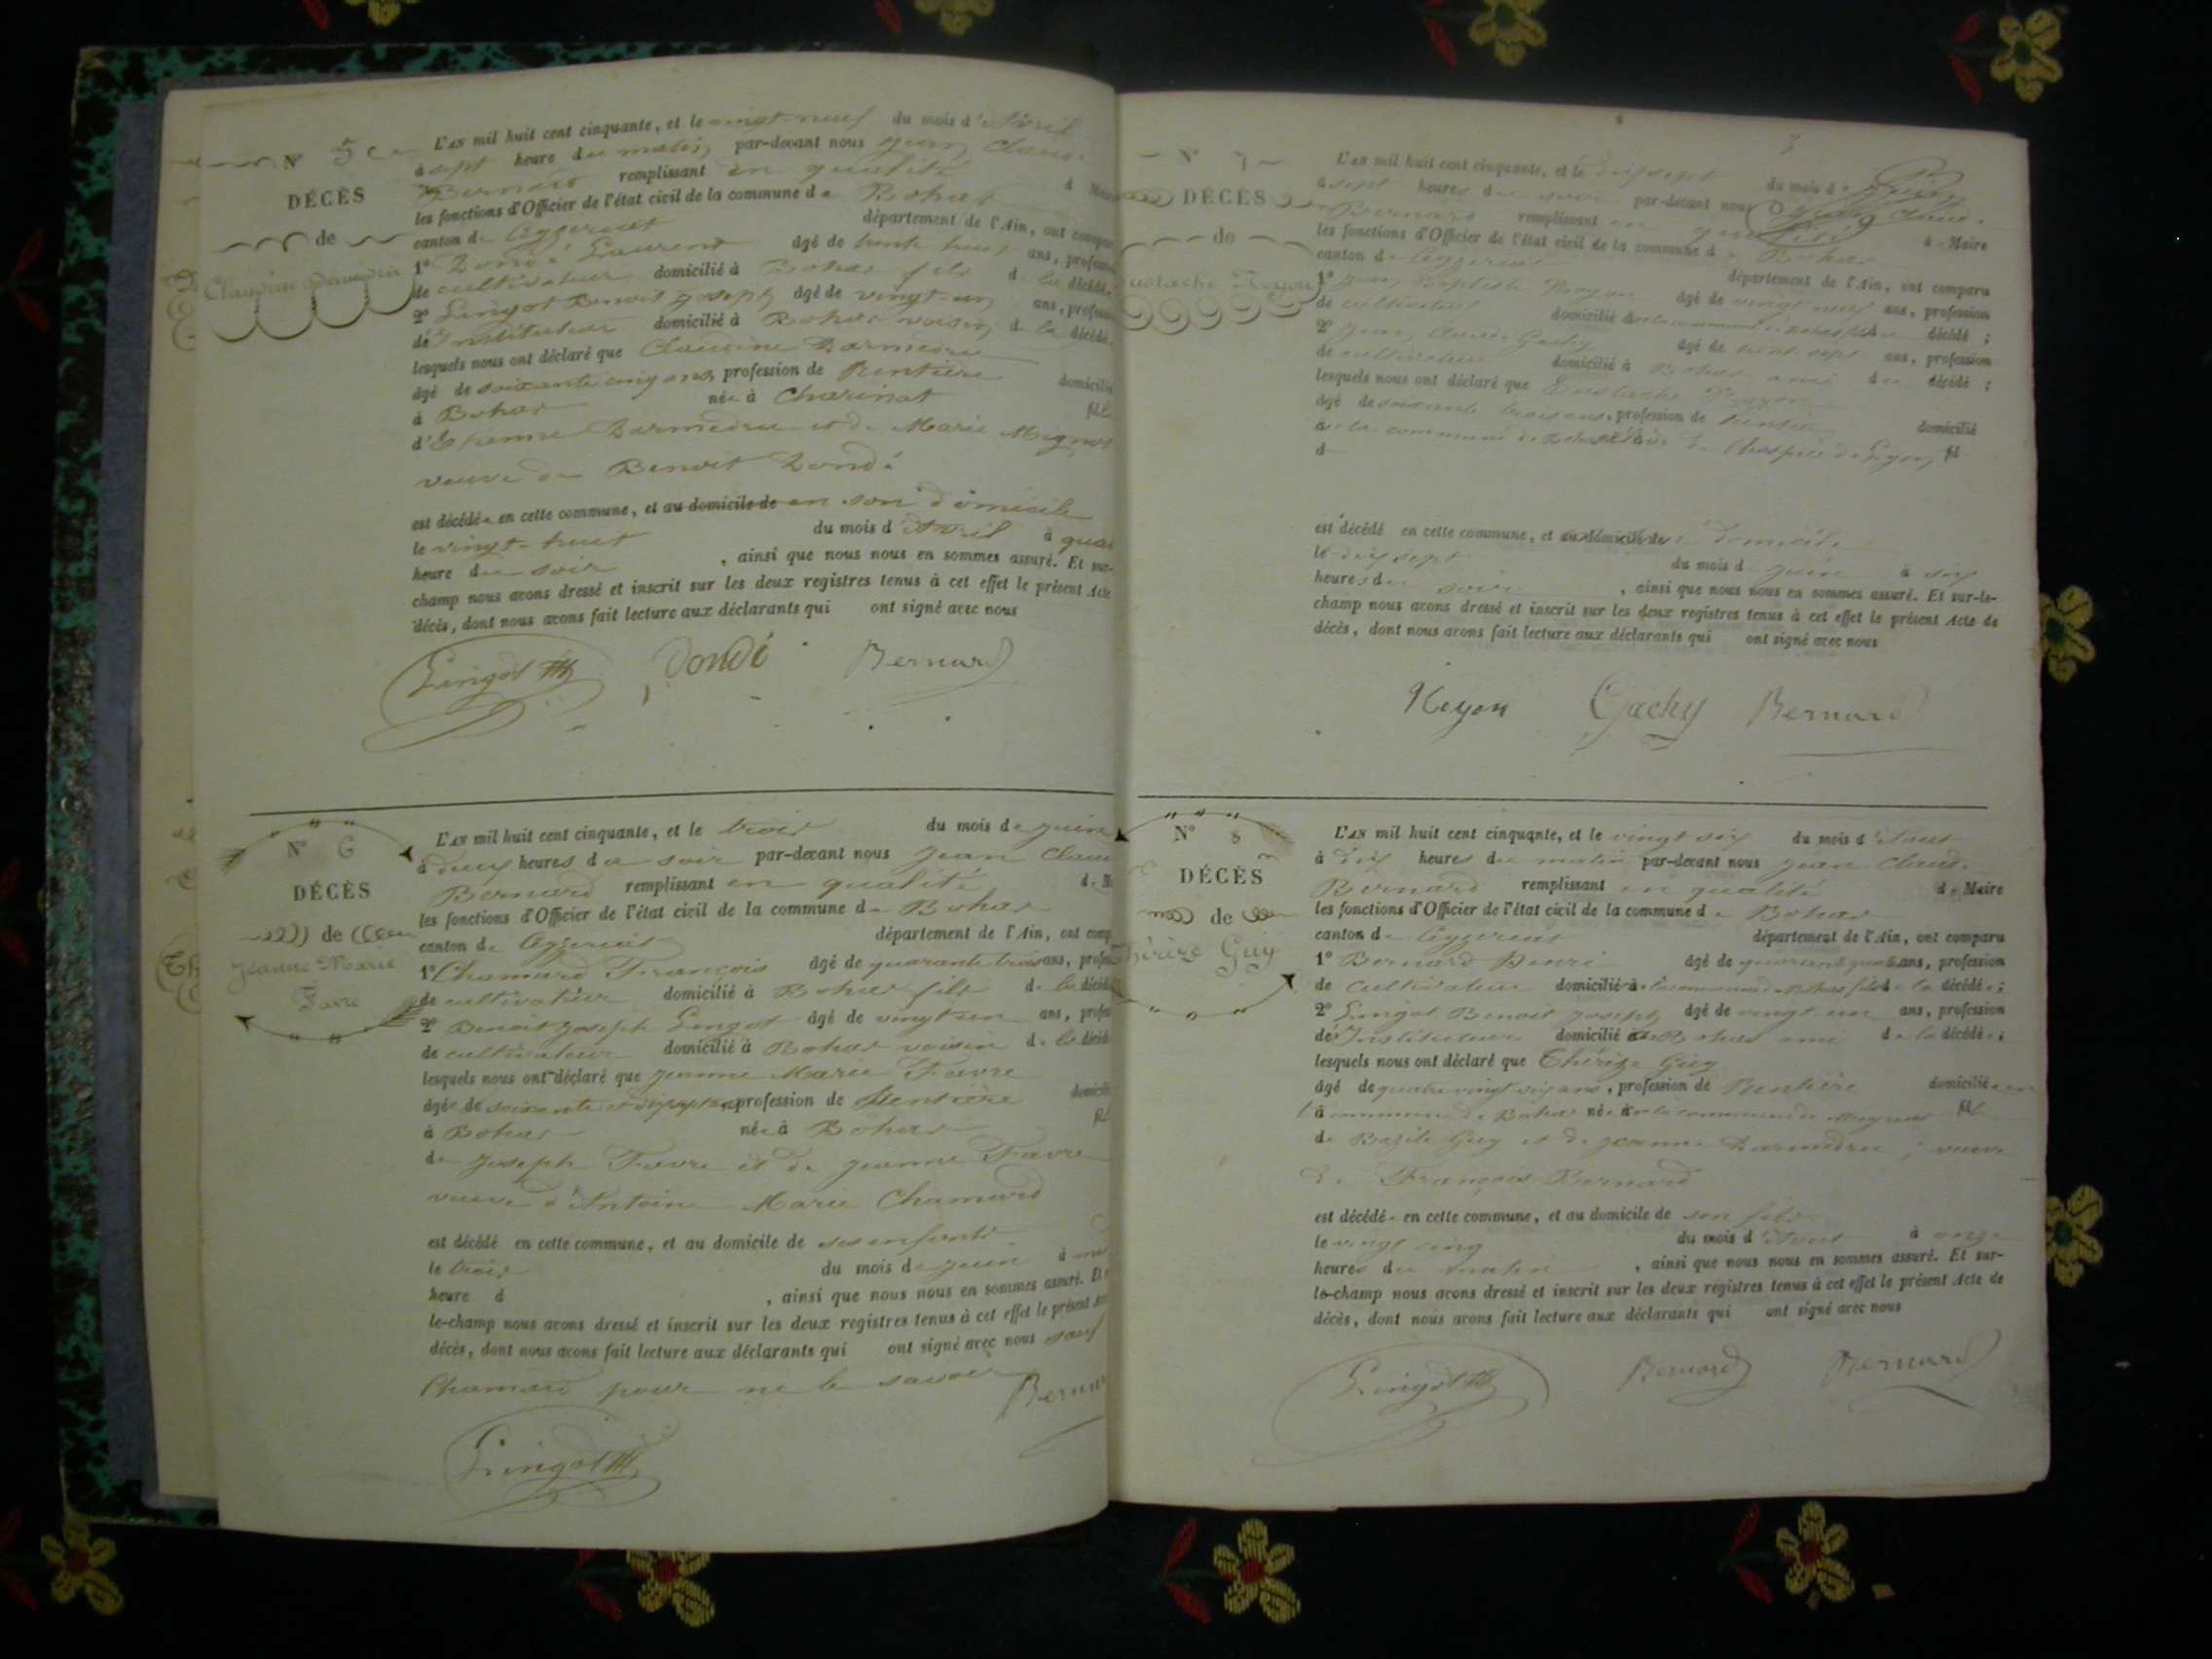 N° 5
DÉCÈS
de
Claudine Darmedru
L'AN mil huit cent cinquante, et le vingt neuf du mois d'Avril
à sept heure du matin par-devant nous Jean Claude
Bernard remplissant en qualité d Maire
les fonctions d'Officier de l'état civil de la commune de Bohas
canton de Ceyzeriat département de l'Ain, ont compar
1° Dondé Laurent âgé de trente huit ans, profession
de cultivateur domicilié à Bohas fils de la décédé
2° Gringot Benoit Joseph âgé de vingt-un ans, profession
de Instituteur domicilié à Bohas voisin de la décédé
lesquels nous ont déclaré que Claudine Darmedru
âgé de soixante cinq ans, profession de Rentière domicilié
à Bohas née à Charinat fil
d'Etienne Darmedru et de Marie Mignot
veuve de Benoit Dondé
est décédée en cette commune, et au domicile de en son domicile
le vingt-huit du mois d'Avril à qua
heure du soir, ainsi que nous nous en sommes assuré. Et sur-
champ nous avons dressé et inscrit sur les deux registres tenus à cet effet le présent Acte
décès, dont nous avons fait lecture aux déclarants qui ont signé avec nous
Gringot Dondé Bernard
N° 6
DÉCÈS
de
Jeanne Marie
Favre
L'AN mil huit cent cinquante, et le trois du mois de Juin
à deux heures du soir par-devant nous Jean Clau
Bernard remplissant en qualité de M
les fonctions d'Officier de l'état civil de la commune de Bohas
canton de Ceyzeriat département de l'Ain, ont comp
1° Chamard François âgé de quarante trois ans, profes
de cultivateur domicilié à Bohas fils de la décéd
2° Benoit Joseph Gringot âgé de vingt un ans, profes
de cultivateur domicilié à Bohas voisin de la décéd
lesquels nous ont déclaré que Jeanne Marie Favre
âgée de soixante et dix profession de Rentière domicili
à Bohas née à Bohas fil
de Joseph Favre et de Jeanne Favre
veuve d'Antoine Marie Chamard
est décédé en cette commune, et au domicile de ses enfants
le trois du mois de Juin à
heure d , ainsi que nous nous en sommes assuré. Et
le-champ nous avons dressé et inscrit sur les deux registres tenus à cet effet le présent Acte
décès, dont nous avons fait lecture aux déclarants qui ont signé avec nous sauf
Chamard pour ne le savoir
Bernar
Gringot
3
N° 7
DÉCÈS
de
ustache Noyon
L'AN mil huit cent cinquante, et le dix sept du mois de Juin
à sept heures du soir par-devant nous Jean Claude
Bernard remplissant en qualité de Maire
les fonctions d'Officier de l'état civil de la commune de Bohas
canton de Ceyzeriat département de l'Ain, ont comparu
1° Jean Baptiste Noyon âgé de vingt neuf ans, profession
de cultivateur domicilié décédé ;
2° Jean Claude Gachy âgé de trente sept ans, profession
de cultivateur domicilié à Bohas ami du décédé ;
lesquels nous ont déclaré que Eustache Noyon
âgé de soixante trois ans, profession de rentier domicilié
la commune de l'hospice de Lyon fil
d
est décédé en cette commune, et au domicile de domicile
le dix sept du mois de Juin à six
heures du soir, ainsi que nous nous en sommes assuré. Et sur-le-
champ nous avons dressé et inscrit sur les deux registres tenus à cet effet le présent Acte de
décès, dont nous avons fait lecture aux déclarants qui ont signé avec nous
Noyon Gachy Bernard
N° 8
DÉCÈS
de
hérèze Guy
L'AN mil huit cent cinquante, et le vingt six du mois d'Aout
à dix heures du matin par-devant nous Jean Claude
Bernard remplissant en qualité de Maire
les fonctions d'Officier de l'état civil de la commune de Bohas
canton de Ceyzeriat département de l'Ain, ont comparu
1° Bernard Denri âgé de quarante ans, profession
de Cultivateur domicilié à la commune de Bohas fils de la décédée ;
2° Gringot Benoit Joseph âgé de vingt un ans, profession
de Instituteur domicilié à Bohas ami de la décédée ;
lesquels nous ont déclaré que Thérèze Guy
âgé de quatre vingt six ans, profession de Rentière domiciliée en
la commune de Bohas née à la commune de fil
de Bazile Guy et de Jeanne Darmedru ; veuve
de François Bernard
est décédée en cette commune, et au domicile de son fils
le vingt cinq du mois d'Aout à onze
heures du matin, ainsi que nous nous en sommes assuré. Et sur-
le-champ nous avons dressé et inscrit sur les deux registres tenus à cet effet le présent Acte de
décès, dont nous avons fait lecture aux déclarants qui ont signé avec nous
Gringot Bernard Bernard